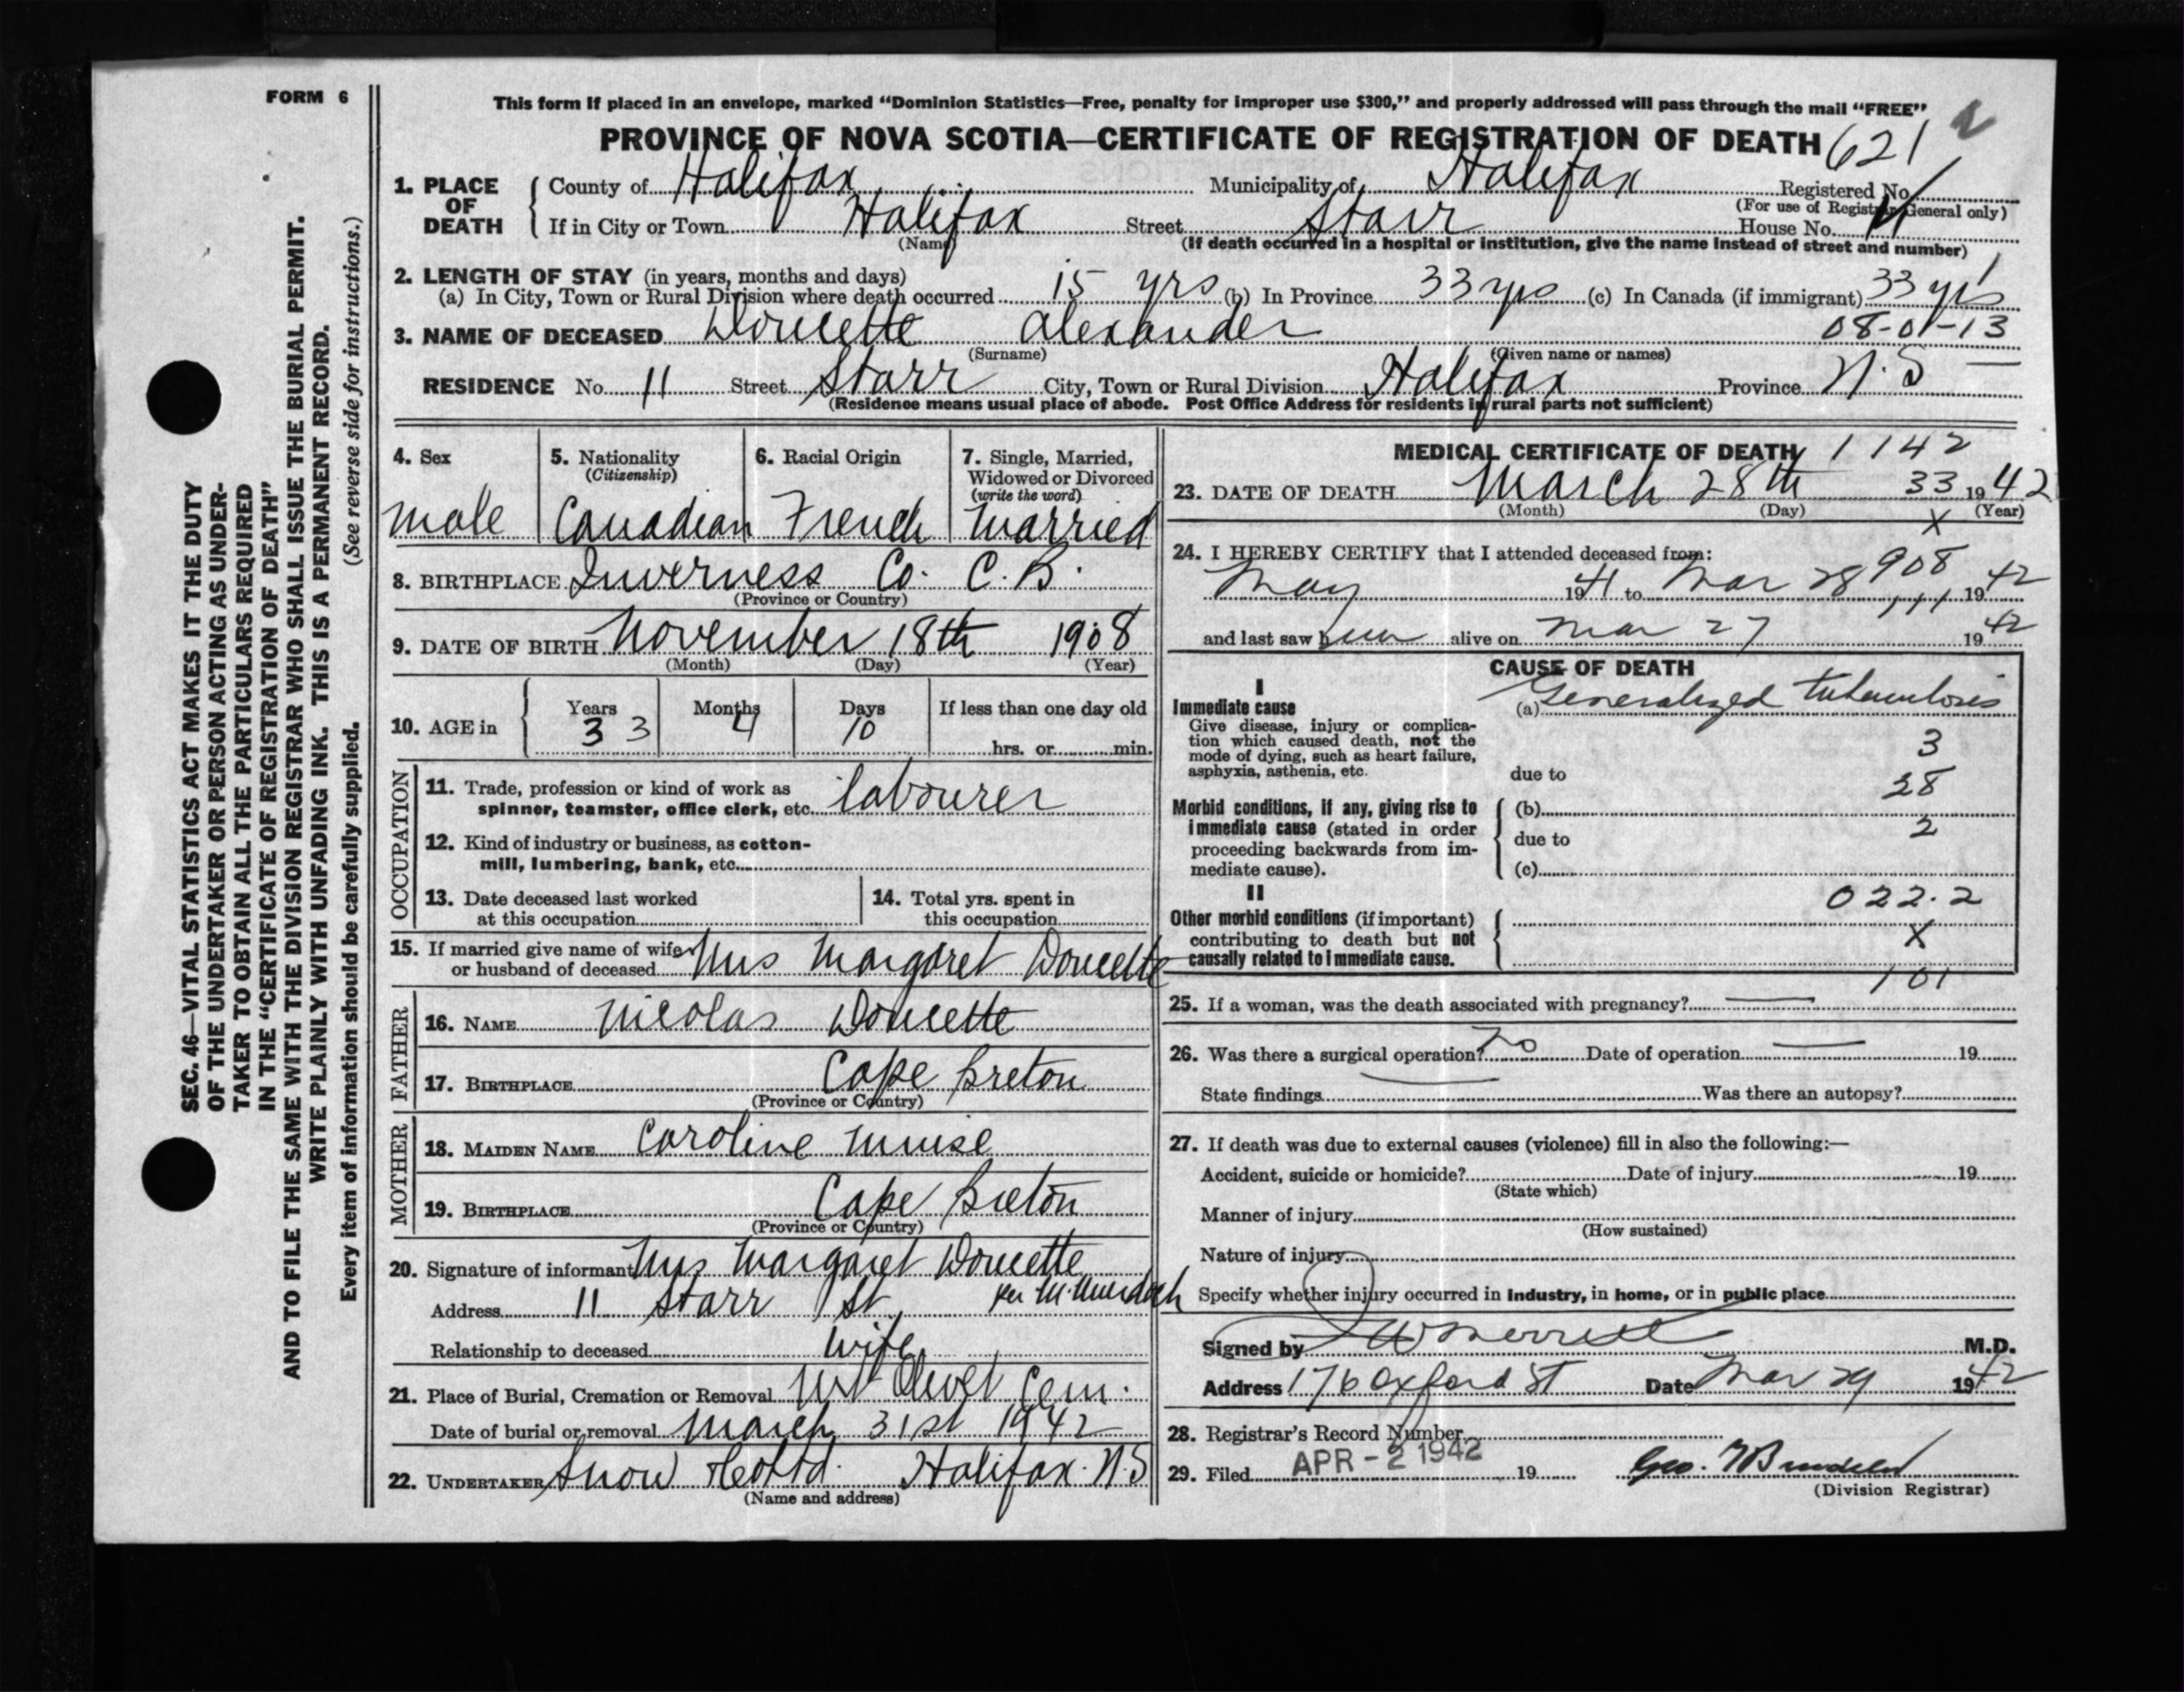 FORM 6
This form if placed in an envelope, marked “Dominion Statistics—Free, penalty for improper use $300,” and properly addressed will pass through the mail “FREE”
PROVINCE OF NOVA SCOTIA—CERTIFICATE OF REGISTRATION OF DEATH 621
1. PLACE OF DEATH County of Halifax Municipality of Halifax Registered No.
(For use of Registrar General only)
If in City or Town Halifax Street Starr House No. 11
(Name) (If death occurred in a hospital or institution, give the name instead of street and number)
2. LENGTH OF STAY (in years, months and days)
(a) In City, Town or Rural Division where death occurred 15 yrs (b) In Province 33 yrs (c) In Canada (if immigrant) 33 yrs
3. NAME OF DECEASED Doucette Alexander 08-01-13
(Surname) (Given name or names)
RESIDENCE No. 11 Street Starr City, Town or Rural Division Halifax Province N.S
(Residence means usual place of abode. Post Office Address for residents in rural parts not sufficient)
4. Sex male
5. Nationality (Citizenship) Canadian
6. Racial Origin French
7. Single, Married, Widowed or Divorced (write the word) Married
8. BIRTHPLACE Inverness Co. C.B.
(Province or Country)
9. DATE OF BIRTH November 18th 1908
(Month) (Day) (Year)
10. AGE in Years 33 Months 4 Days 10 If less than one day old
hrs. or min.
OCCUPATION
11. Trade, profession or kind of work as
spinner, teamster, office clerk, etc. labourer
12. Kind of industry or business, as cotton-
mill, lumbering, bank, etc.
13. Date deceased last worked at this occupation
14. Total yrs. spent in this occupation
15. If married give name of wife
or husband of deceased Mrs Margaret Doucette
FATHER
16. NAME Nicolas Doucette
17. BIRTHPLACE Cape Breton
(Province or Country)
MOTHER
18. MAIDEN NAME Caroline Muise
19. BIRTHPLACE Cape Breton
(Province or Country)
20. Signature of informant Mrs Margaret Doucette
per M. Murdoch
Address 11 Starr St.
Relationship to deceased wife
21. Place of Burial, Cremation or Removal Mt Olivet Cem.
Date of burial or removal March 31st 1942
22. UNDERTAKER Snow & Co Ltd. Halifax. N.S
(Name and address)
MEDICAL CERTIFICATE OF DEATH 1142
23. DATE OF DEATH March 28th 33 1942
(Month) (Day) X (Year)
24. I HEREBY CERTIFY that I attended deceased from:
908
May 1941 to Mar 28 1942
and last saw him alive on Mar 27 1942
CAUSE OF DEATH
I
Immediate cause
Give disease, injury or complica-
tion which caused death, not the
mode of dying, such as heart failure,
asphyxia, asthenia, etc.
(a) Generalized tuberculosis
3
due to
28
Morbid conditions, if any, giving rise to
immediate cause (stated in order
proceeding backwards from im-
mediate cause).
(b)
due to 2
(c)
II
022.2
Other morbid conditions (if important)
contributing to death but not
causally related to immediate cause.
X
101
25. If a woman, was the death associated with pregnancy?
26. Was there a surgical operation? No Date of operation 19
State findings Was there an autopsy?
27. If death was due to external causes (violence) fill in also the following:—
Accident, suicide or homicide? Date of injury 19
(State which)
Manner of injury
(How sustained)
Nature of injury
Specify whether injury occurred in industry, in home, or in public place
Signed by W Merritt M.D.
Address 176 Oxford St Date Mar 29 1942
28. Registrar's Record Number
29. Filed APR - 2 1942 19
Geo.
(Division Registrar)
SEC. 46—VITAL STATISTICS ACT MAKES IT THE DUTY
OF THE UNDERTAKER OR PERSON ACTING AS UNDER-
TAKER TO OBTAIN ALL THE PARTICULARS REQUIRED
IN THE “CERTIFICATE OF REGISTRATION OF DEATH”
AND TO FILE THE SAME WITH THE DIVISION REGISTRAR WHO SHALL ISSUE THE BURIAL PERMIT.
WRITE PLAINLY WITH UNFADING INK. THIS IS A PERMANENT RECORD.
Every item of information should be carefully supplied. (See reverse side for instructions.)